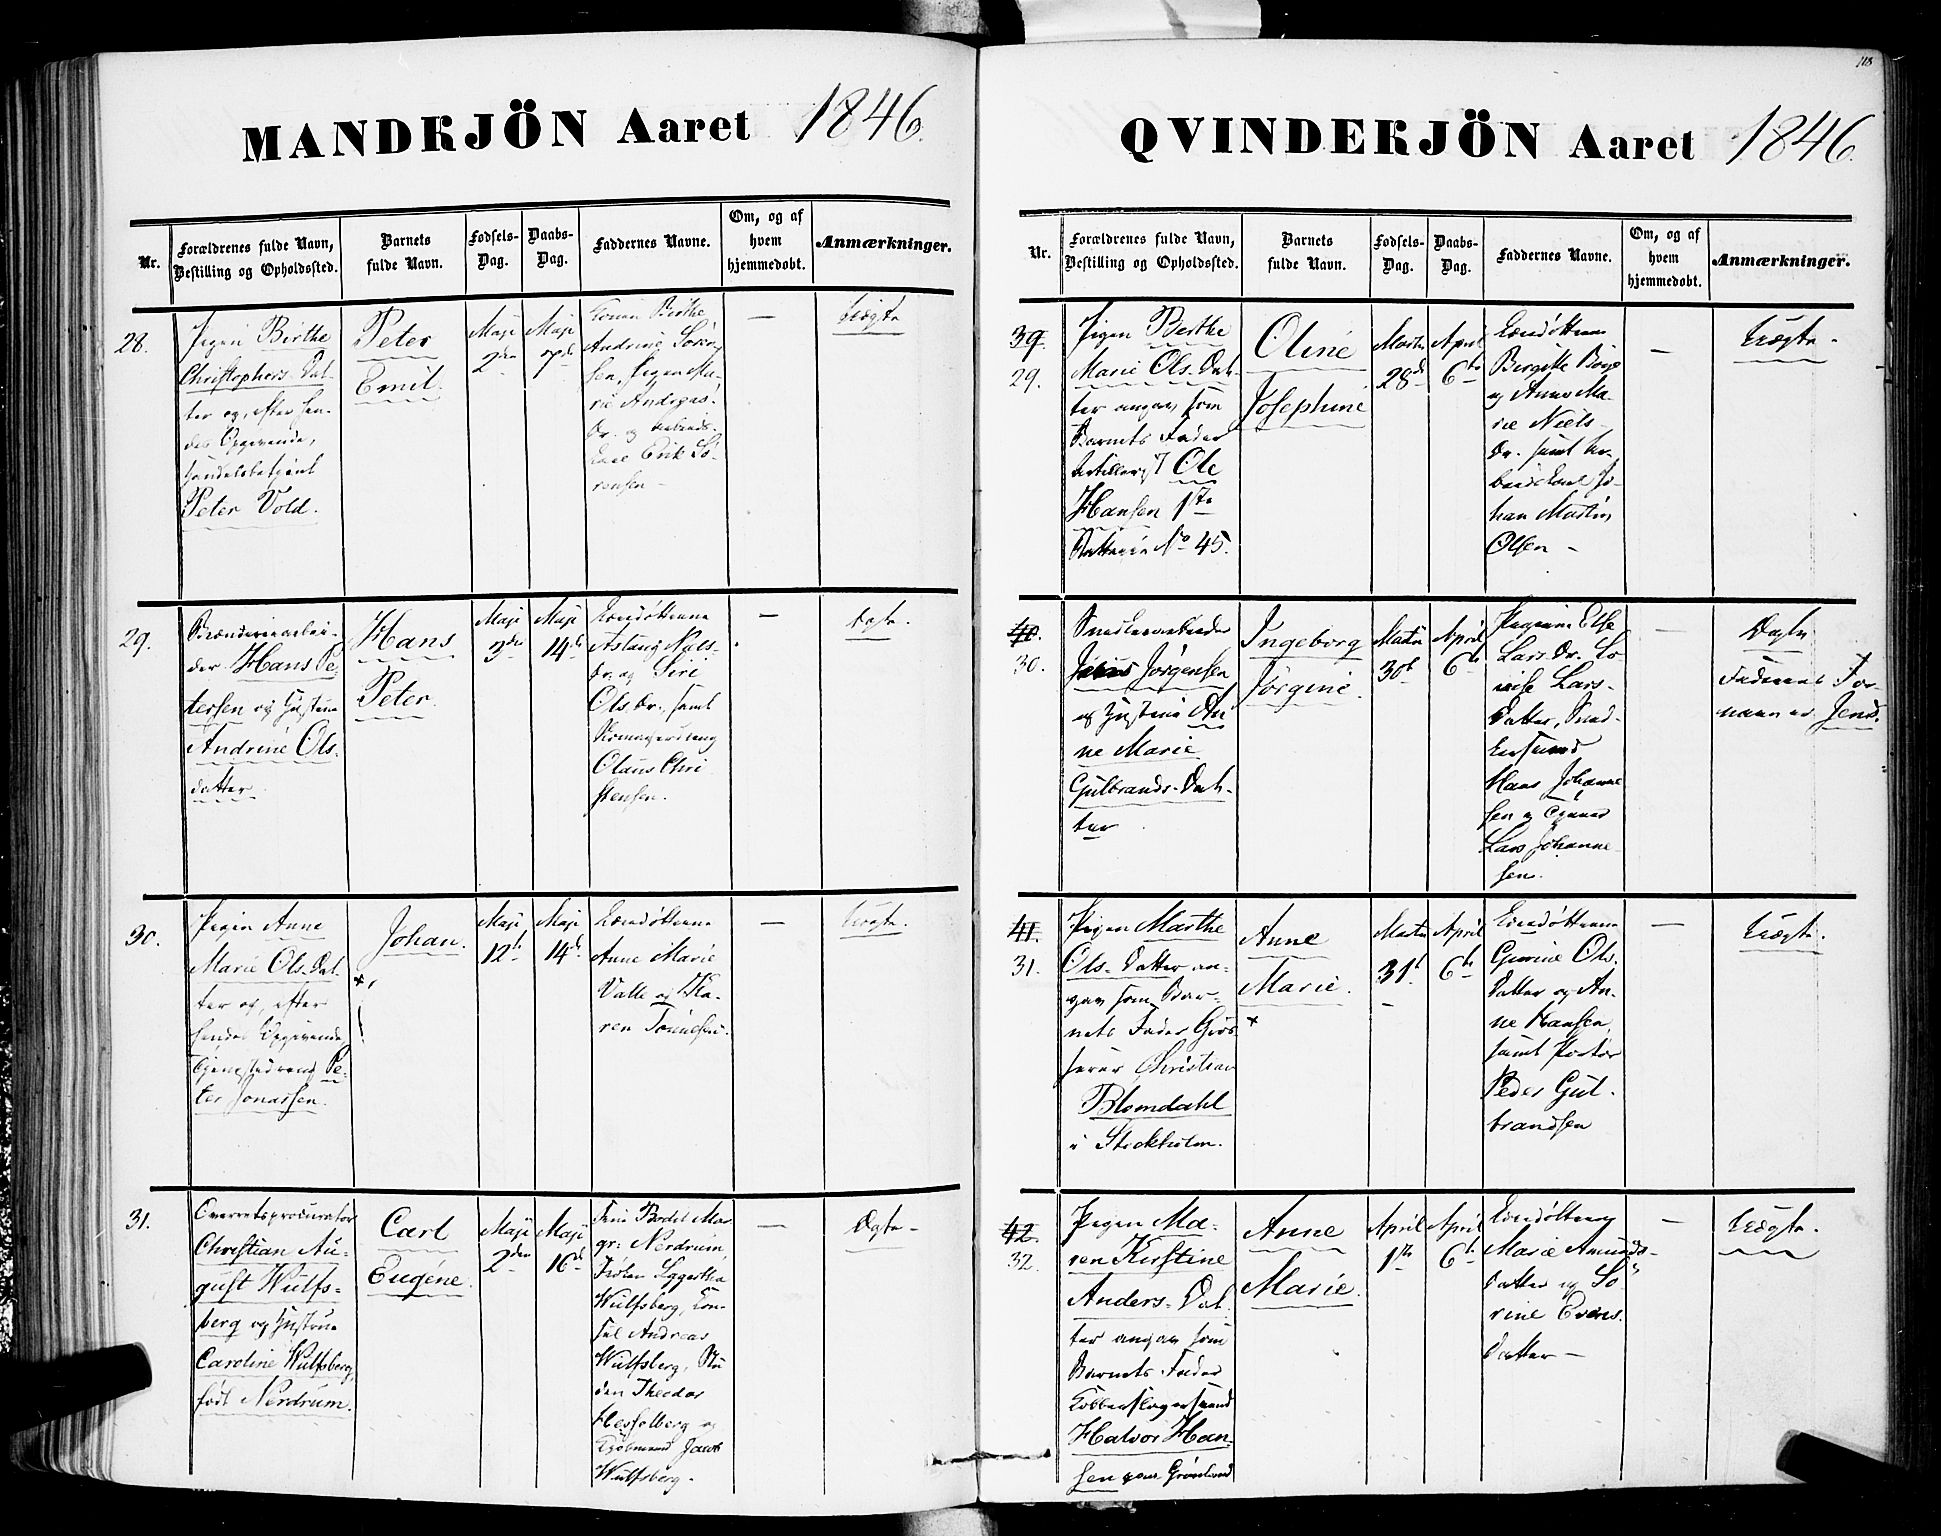 MANDKJÖN Aaret 1846.
Nr.
Forældrenes fulde Navn,
Bestilling og Opholdssted.
Barnets
fulde Navn.
Fødsels-
Dag.
Daabs-
Dag.
Faddernes Navne.
Om, og af
hvem
hjemmedobt.
Anmærkninger.
28.
Pigen Birthe
Christophers-Dat-
ter og, efter hen-
des Opgivende,
Handelsbetjent
Peter Vold.
Peter
Emil.
Maji
2den
Maji
7de
Konen Birthe
Andrine Søren-
sen, Pigen Ma-
rie Andreas-
Dr. og Arbeids-
karl Erik Sö-
rensen –
—
Uægte
29.
Brænderiearbei-
der Hans Pe-
tersen og Hustrue
Andrine Ols-
datter.
Hans
Peter.
Maji
3die
Maji
14de
Aslaug Nils-
Dr. og Siri
Ols. Dr. samt
Olaus Chri-
stensen.
—
Ægte.
30.
Pigen Anne
Marie Ols-Dat-
ter og, efter
hendes Opgivende,
Tjenestedreng Pe-
ter Jonassen.
Johan.
Maji
12te
Maji
14de
Anne Marie
Valle og Ka-
ren Tønnesen.
—
Uægte.
31.
Overretsprocurator
Christian Au-
gust Wulfs-
berg og Hustrue
Caroline Wulfsberg,
født Nerdrum.
Carl
Eugéne.
Maji
2den
Maji
16de
Frue Bodil Mar-
gr: Nerdrum,
Frøken Eggertha
Wulfsberg, Con-
sul Andreas
Wulfsberg, Stu-
den Theodor
Hesselberg og
Kjøbmand Jacob
Wulfsberg.
—
Ægte –
118
QVINDEKJÖN Aaret 1846.
Nr.
Forældrenes fulde Navn,
Bestilling og Opholdssted.
Barnets
fulde Navn.
Fødsels-
Dag.
Daabs-
Dag.
Faddernes Navne.
Om, og af
hvem
hjemmedobt.
Anmærkninger.
39.
29.
Pigen Birthe
Marie Ols-Dat-
ter angav som
Barnets Fader
Artillerist Ole
Hansen 1ste
Batterie No 45.
Oline
Josephine
Martz
28de
April
6te
Birgitte Borge
og Anne Ma-
rie Niels-
Dr. samt Ar-
beidskarl Jo-
han Martin
Olsen –
—
Uægte.
40.
30.
Snedkerarbeider
Jørgensen
og Hustrue An-
ne Marie
Gulbrands-Dat-
ter
Ingeborg
Jørgine.
Martz
30te
April
6te
Pigerne Else
Lars Dr. Lo-
vise Lars-
Datter, Sned-
kersvend
Hans Johanne-
sen og
Lars Johanne-
sen.
—
Ægte
Faderens For-
navn er Jens.
41.
31.
Pigen Marthe
Ols-Datter an-
gav som Bar-
nets Fader Gros-
serer Christian
Blomdahl
i Stockholm.
Anne
Marie.
Martz
31te
April
6te
Gurine Ols-
Datter og An-
ne Hansen,
samt Portør
Peder Gul-
brandsen
—
Uægte.
42.
32.
Pigen Ma-
ren Kirstine
Anders-Dat-
ter angav som
Barnets Fader
Kobberslagersvend
Halvor Han-
sen paa Grønland
Anne
Marie.
April
1ste
April
6te
Marie Amunds-
Datter og So-
rine Evens-
Datter –
—
Uægte.